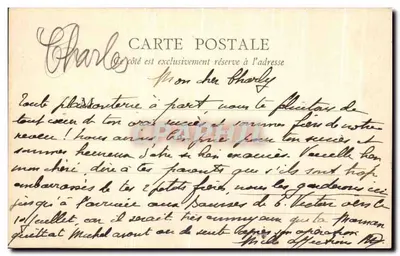 Charles
CARTE POSTALE
Ce côté est exclusivement réservé à l'adresse
Mon cher Charly
Toute plaisanterie à part, nous te félicitons de
tout coeur de ton succès et sommes fiers de notre
neveu ! nous avons prié pour ton succès et
sommes heureux d'être si bien exaucés. Veuille bien
mon chéri, dire à tes parents que s'ils sont trop
embarrassés de tes 2 petits frères, nous les garderons ici
jusqu'à l'arrivée aux de St Victor vers le
juillet, car il serait très ennuyeux que ta Maman
quittât Michel avant ou de suite après son opération
Mille affections